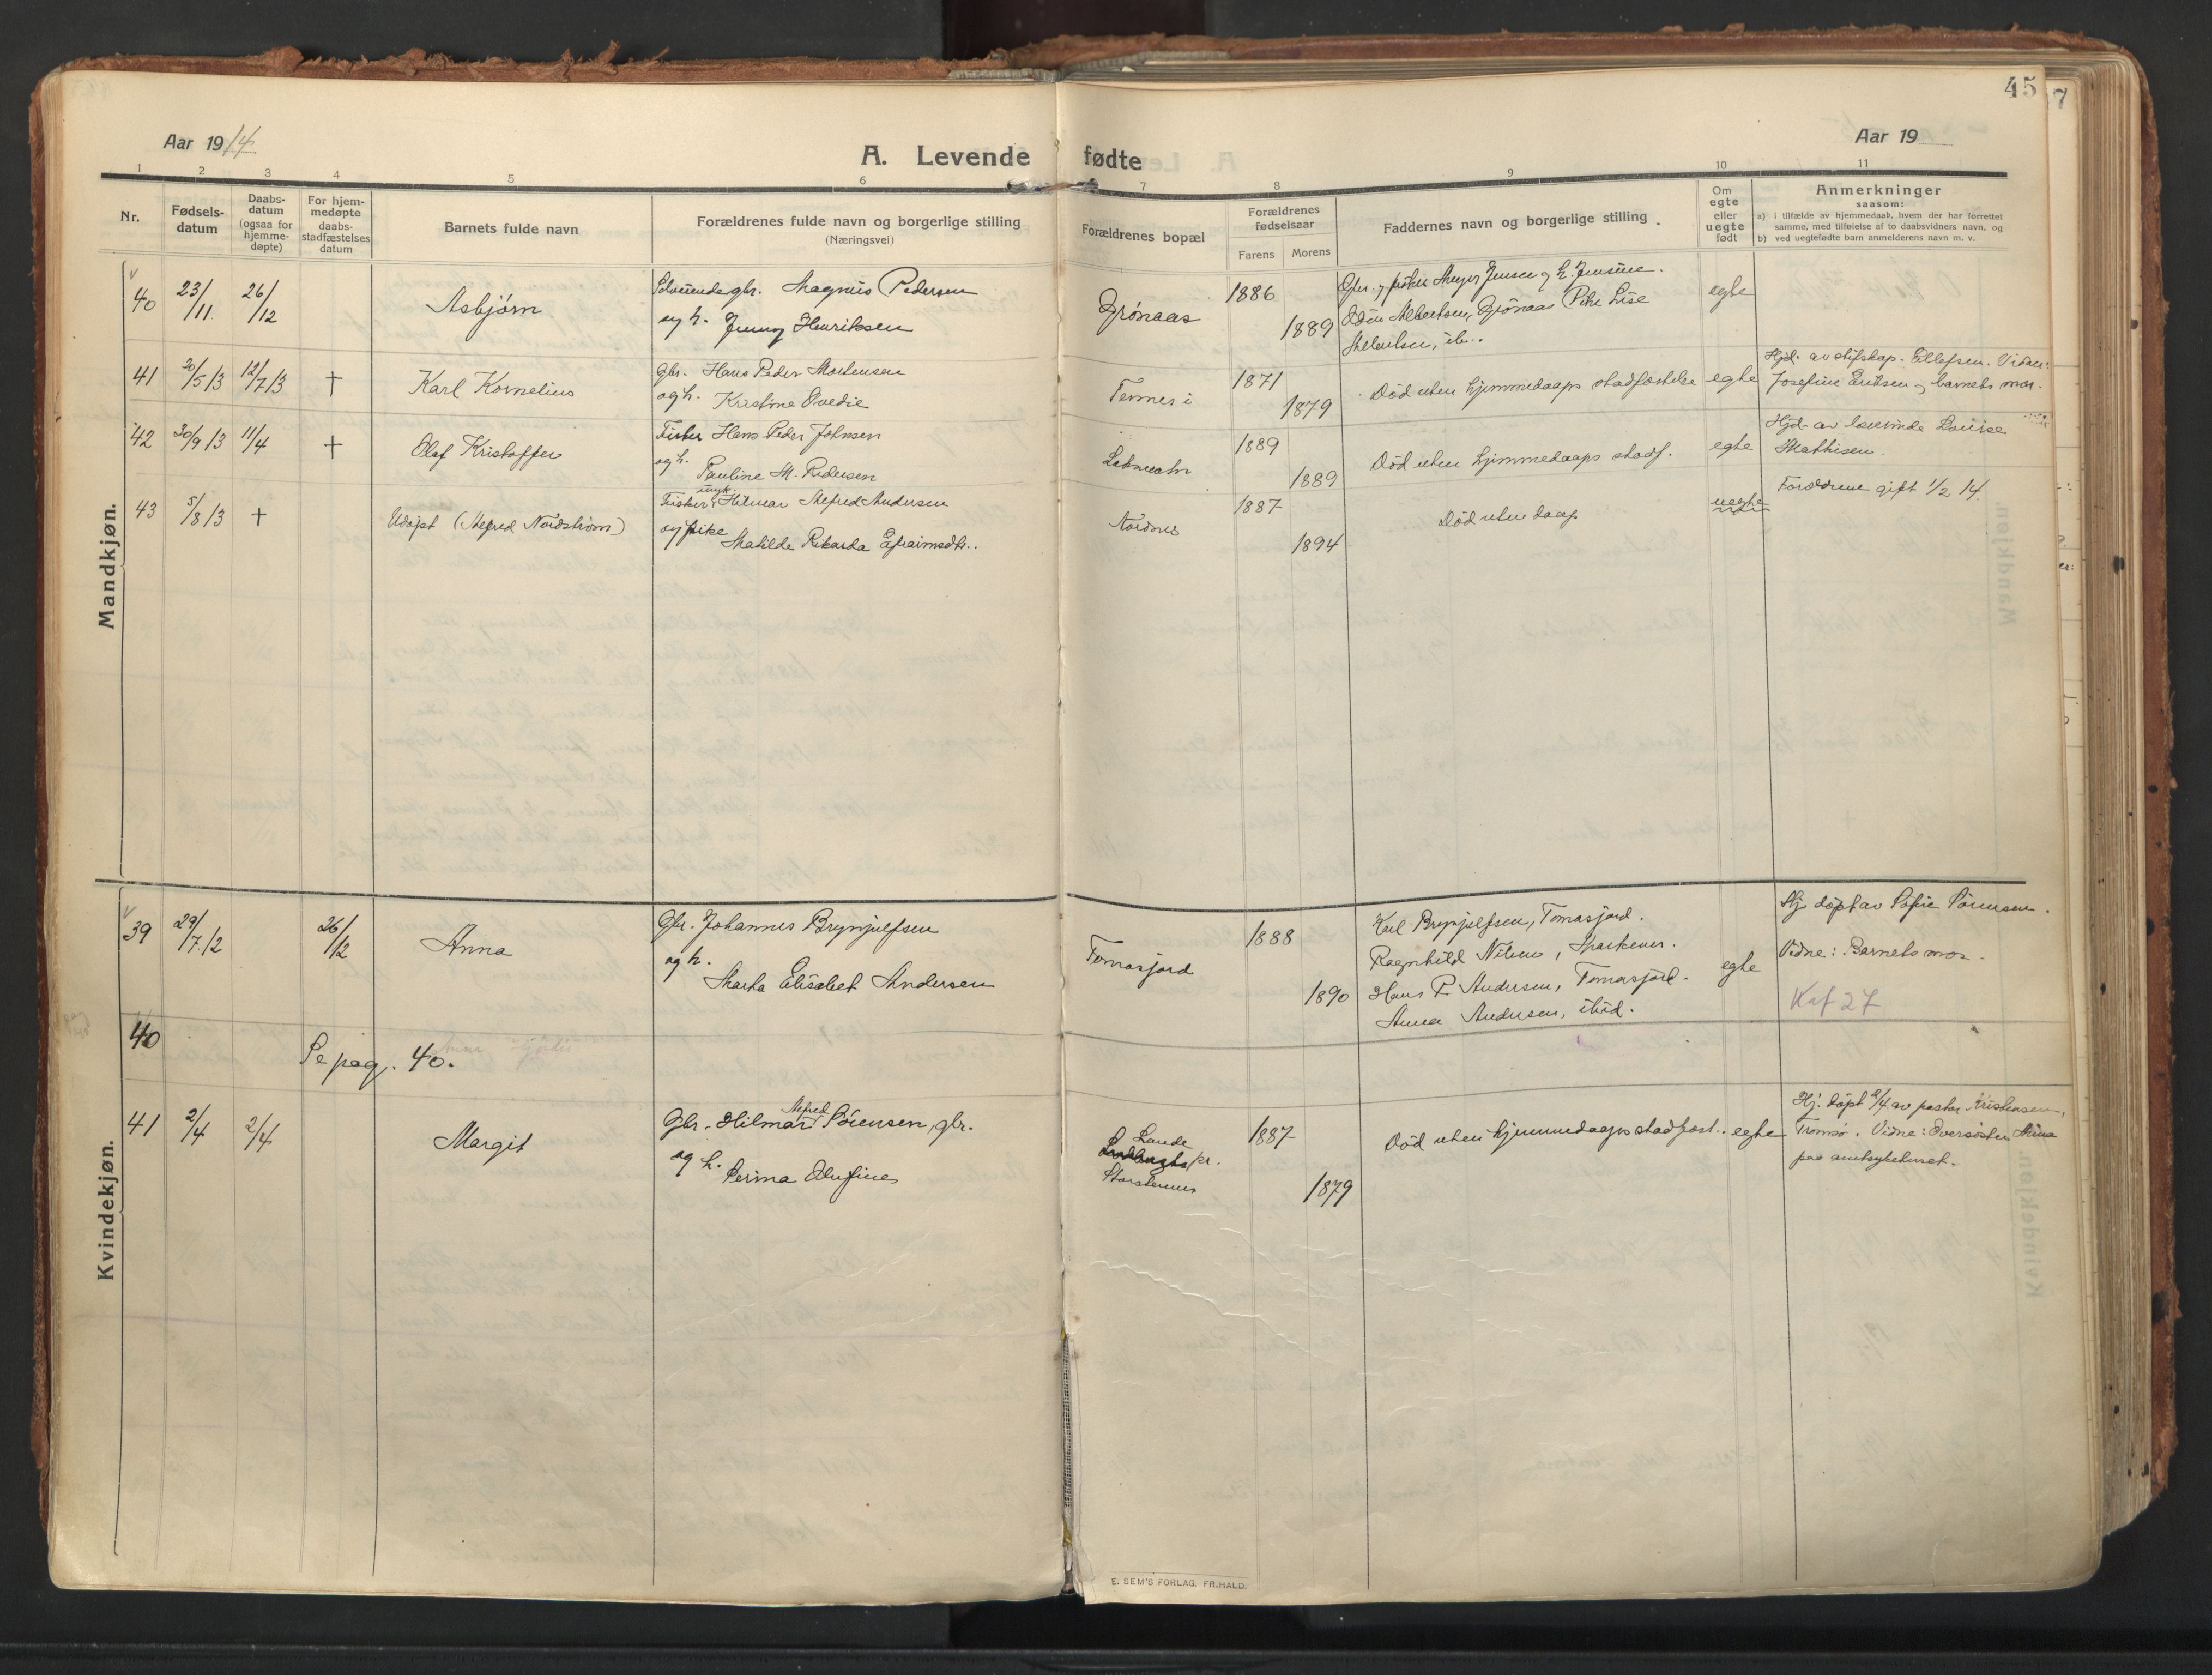 45
7
Aar 1914
A. Levende fødte
Aar 19
1 2 3 4 5 6 7 8 9 10 11
Nr.
Fødsels-
datum
Daabs-
datum
(ogsaa for
hjemme-
døpte)
For hjem-
medøpte
daabs-
stadfæstelses
datum
Barnets fulde navn
Forældrenes fulde navn og borgerlige stilling
(Næringsvei)
Forældrenes bopæl
Forældrenes
fødselsaar
Farens Morens
Faddernes navn og borgerlige stilling
Om
egte
eller
uegte
født
Anmerkninger
saasom:
a) i tilfælde av hjemmedaab, hvem der har forrettet
samme, med tilføielse af to daabsvidners navn, og
b) ved uegtefødte barn anmelderens navn m. v.
Mandkjøn.
40 23/11. 26/12 Asbjørn
gbr. Magnus Pedersen
og h. Jenny Henriksen
Grønaas
1886
1889
Gbr. og fisker Meyer Jensen og h. Jensine.
Odin Albertsen, Grønaas Pike Lise
Albertsen, ib..
egte
41 30/5 13 12/7 13 † Karl Kornelius
Gbr. Hans Peder Mortensen
og h. Kristine Ovedie
1871
1879
Død uten hjemmedaaps stadfæstelse
egte
Hjd. av Ellefsen. Vidner:
Josefine Eriksen og barnets mor.
42 30/9 13 11/4 † Olaf Kristoffer
Fisker Hans Peder Johnsen
og h. Pauline M. Pedersen
1889
1889
Død uten hjemmedaaps stadf.
egte
Hjd. av lærerinde Louise
Mathisen.
43 5/8 13 † Udøpt (Alfred Nordstrøm)
Fisker ungk. Hilmar Alfred Andersen
og pike Matilde Rikarda Efraimsdtr..
Nordnes
1887
1894
Død uten daap
uegte
Forældrene gift 1/2 14.
Kvindekjøn.
39 29/7. 12 26/12 Anna
Gbr. Johannes Brynjulfsen
og h.
Marta Elisabet Andersen
Tomasjord
1888
1890
Karl Brynjulfsen, Tomasjord.
Ragnhild Nilsen,
Hans P. Andersen, Tomasjord.
Anna Andersen, ibid.
egte
Hj. døpt av Sofie Sørensen.
Vidne: Barnets mor.
Kaf 27
40
Se pag. 40.
41 2/4 2/4 Margit
Gbr. Hilmar Alfred Sørensen, gbr.
og h.
Serina Olufine
Lande
pr.
Storstennes
1887
1879
Død uten hjemmedaaps stadfæst..
egte
Hj. døpt 2/4 av pastor Kristensen,
Tromsø. Vidne: Oversøster Mina
paa amtsykehuset.
E. SEM'S FORLAG, FR.HALD.